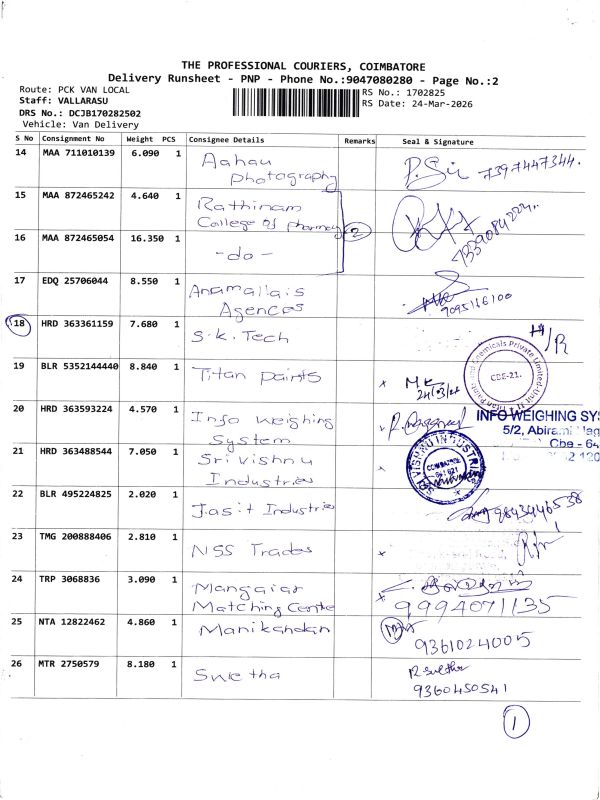 THE PROFESSIONAL COURIERS, COIMBATORE
Delivery Runsheet - PNP - Phone No.:9047080280 - Page No.:2
Route: PCK VAN LOCAL
RS No.: 1702825
Staff: VALLARASU
RS Date: 24-Mar-2026
DRS No.: DCJB170282502
Vehicle: Van Delivery
S No Consignment No Weight PCS Consignee Details Remarks Seal & Signature
14 MAA 711010139 6.090 1 Aahau
photography
P.Sir 7397447344.
15 MAA 872465242 4.640 1 Rathinam
College of pharmacy
2
7339084224.
16 MAA 872465054 16.350 1 -do-
17 EDQ 25706044 8.550 1 Anamallais
Agences
9095116100
18 HRD 363361159 7.680 1 S.K. Tech
H/R
19 BLR 5352144440 8.840 1 Titan paints
x MK
Chemicals Private Limited-Unit II
CBE-21.
20 HRD 363593224 4.570 1 Info weighing
System
INFO WEIGHING SYS
5/2, Abirami Nag
Cbe - 64
21 HRD 363488544 7.050 1 Sri vishnu
Industries
x
SRI VISHNU INDUSTRIES
COIMBATORE
641 021
22 BLR 495224825 2.020 1 Jasit Industries
9843946538
23 TMG 200888406 2.810 1 NSS Trades
x
24 TRP 3068836 3.090 1 Mangaiar
Matching Centre
x
9994071135
25 NTA 12822462 4.860 1 Manikandan
9361024005
26 MTR 2750579 8.180 1 Swetha
9360450541
1